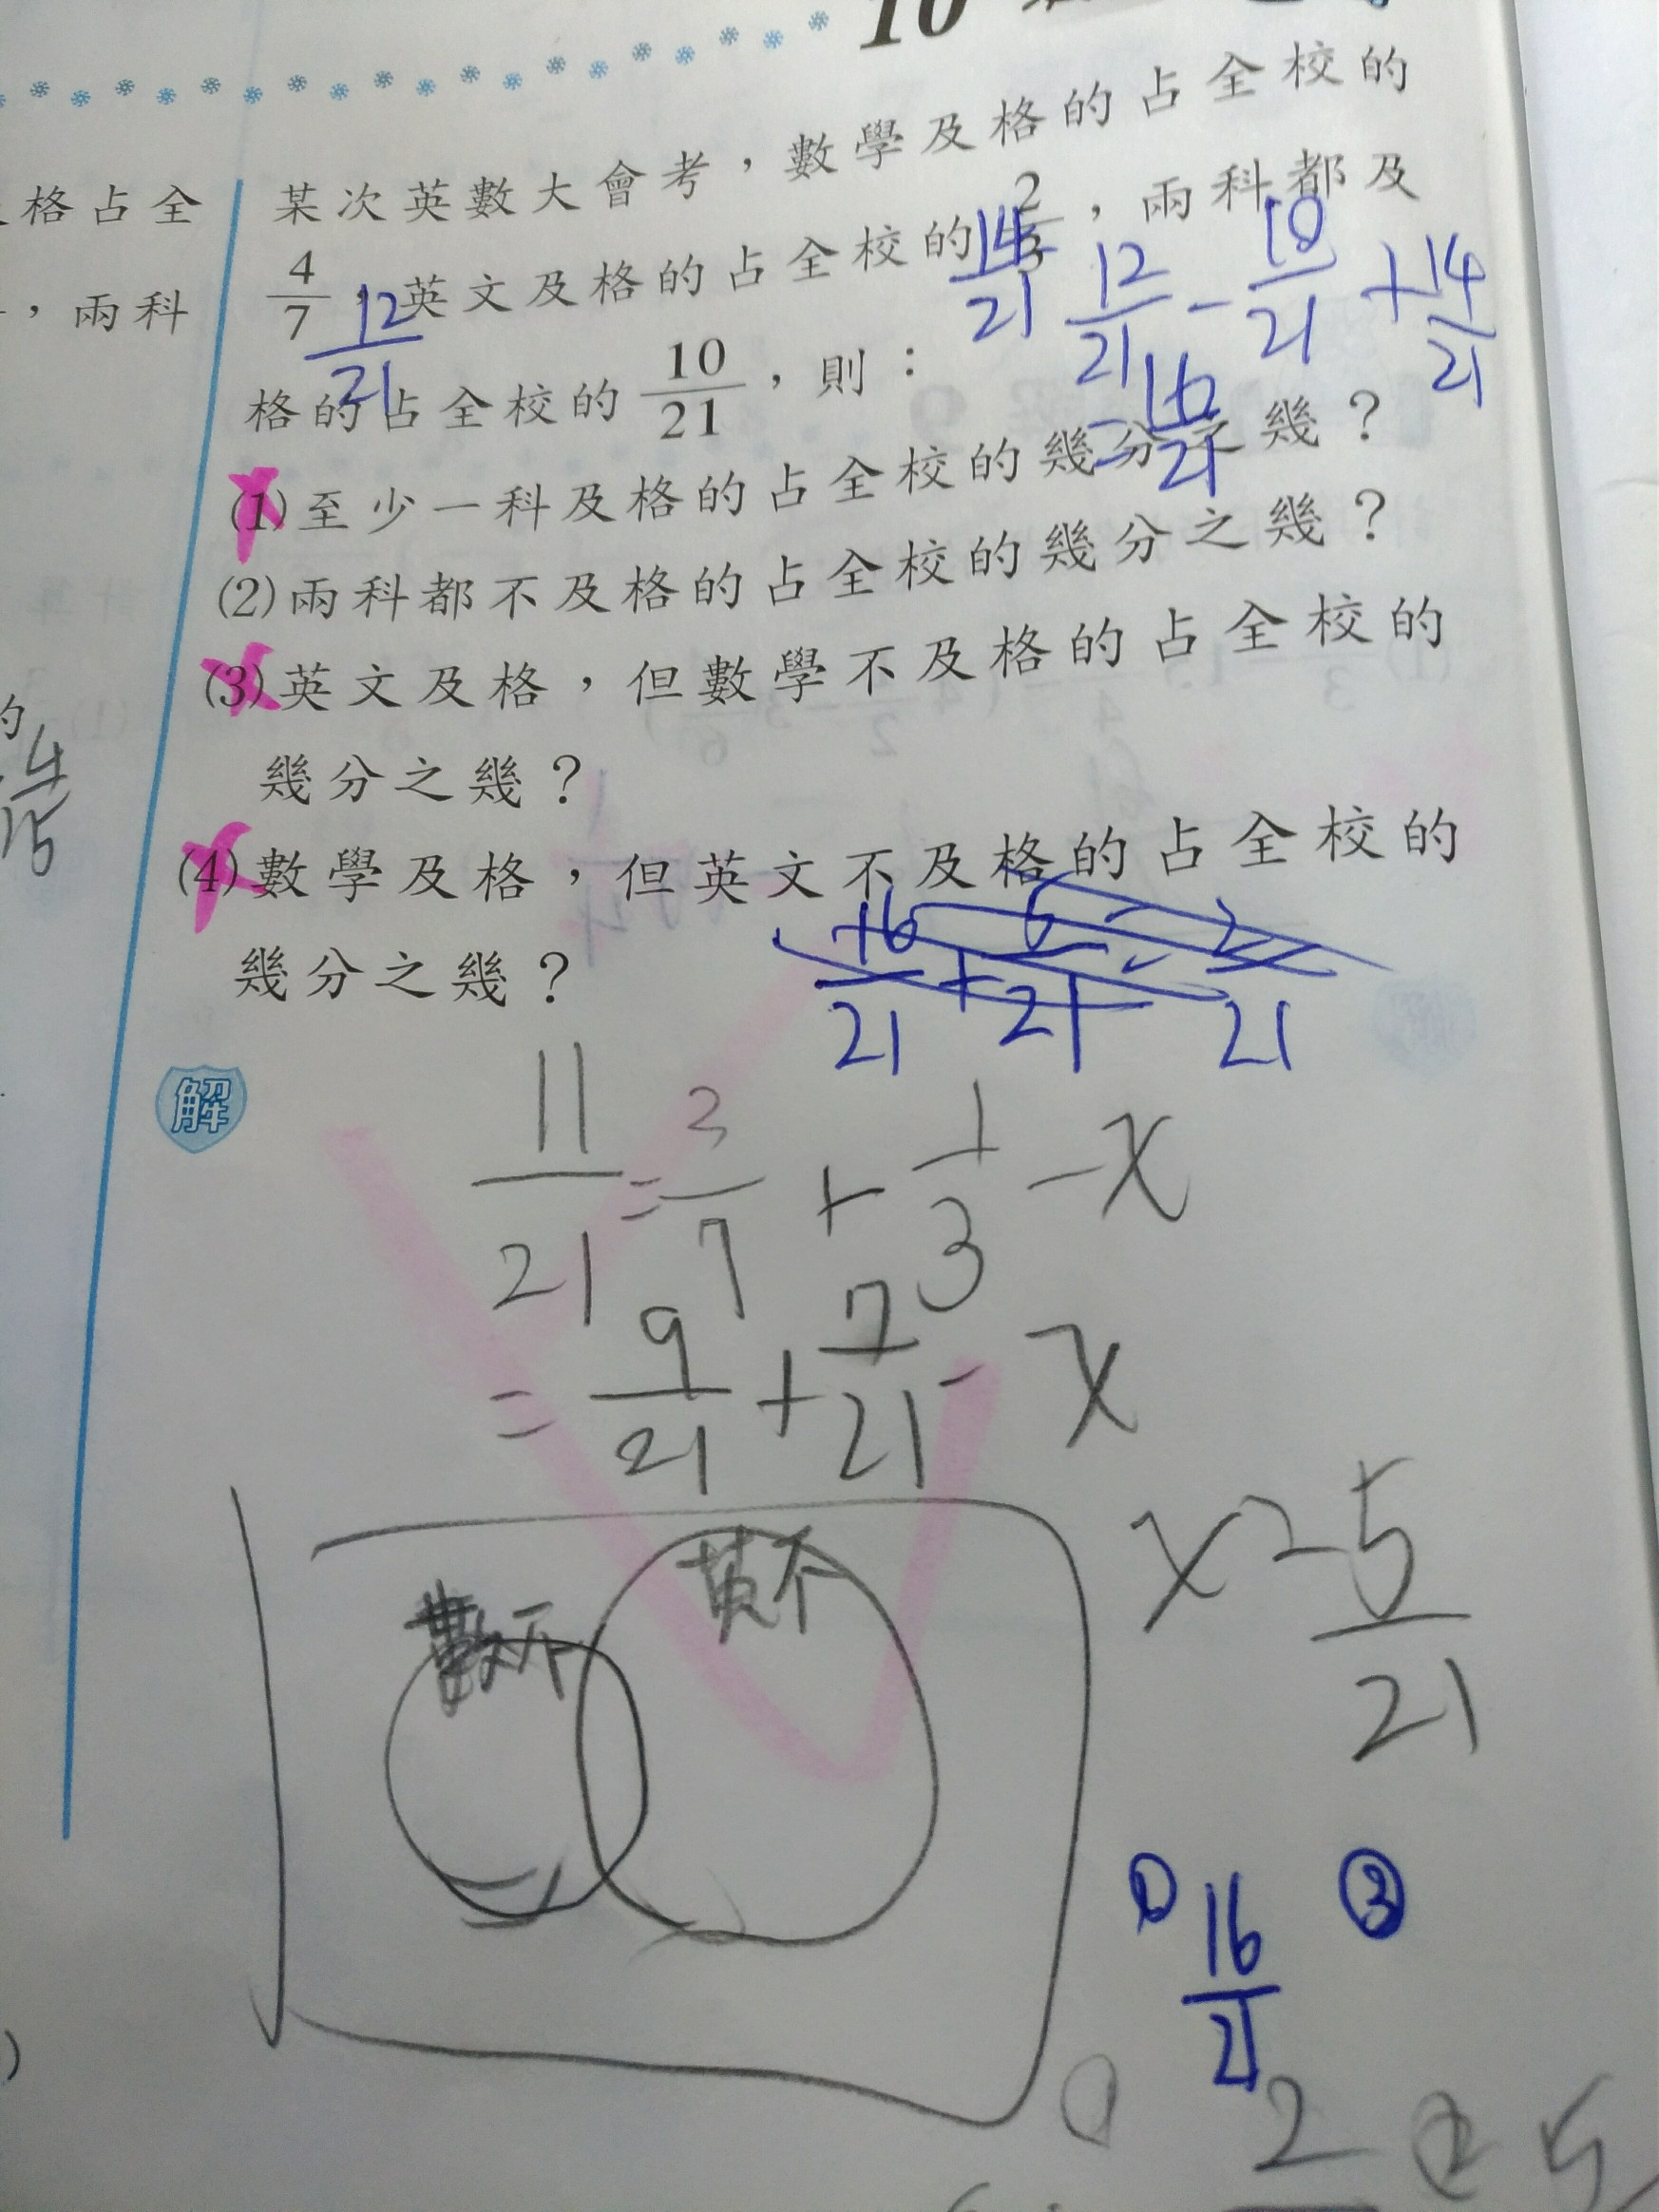 10
格占全
，兩科
某次英數大會考，數學及格的占全校的
4/7，英文及格的占全校的2/3，兩科都及
12/21 14/21 12/21 - 10/21 + 14/21
格的占全校的10/21，則： = 16/21
(1)至少一科及格的占全校的幾分之幾？
(2)兩科都不及格的占全校的幾分之幾？
(3)英文及格，但數學不及格的占全校的
幾分之幾？
(4)數學及格，但英文不及格的占全校的
幾分之幾？
16/21 + 6/21 - 2/21
解
11/21 = 3/7 + 1/3 - x
= 9/21 + 7/21 - x
x = 5/21
數不 英不
① 16/21 ③
2 ② 5
的
4/15
)